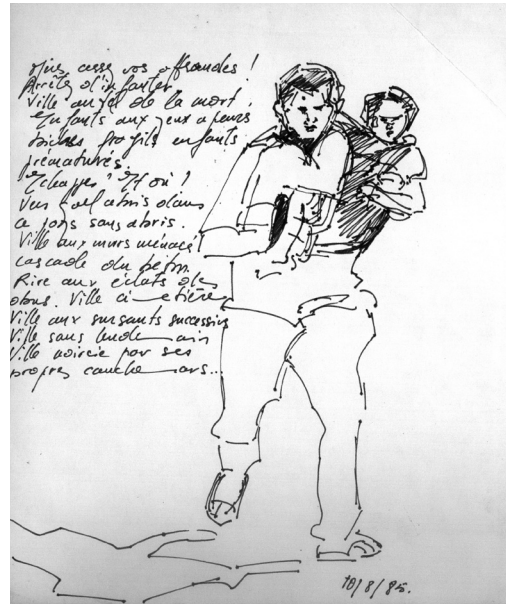 cesse vos offrandes !
Arrête d'enfanter
Ville au fil de la mort,
Enfants aux yeux apeurés
profils enfants
prématurés.
Echapper ? Et où ?
Vers quel abris dans
ce pays sans abris.
Ville aux murs menacé
cascade du béton
Rire aux éclats des
obus. Ville cimetière
Ville aux sursauts successifs
Ville sans lendemain
Ville noircie par ses
propres cauchemars...
18/8/85.